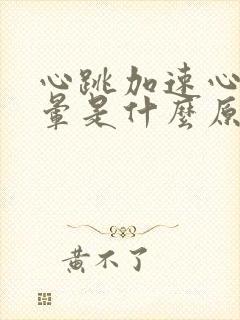 心跳加速心
暈是什麼原
黃不了